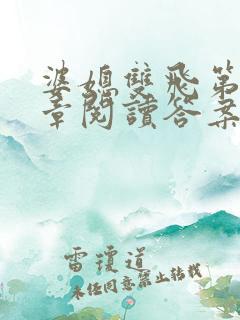 婆媳雙飛第
章閱讀答案
雷瓊道
未经同意禁止转载